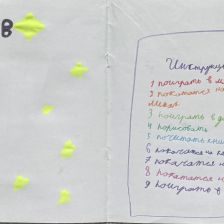 В
Инструкци
1 поиграть в м
2 покататся на
лыжах
3 поиграть в д
4 порисовать
5 почитать кни
6 покачатся на ка
7 покачатся н
8 покататся н
9 поиграть в